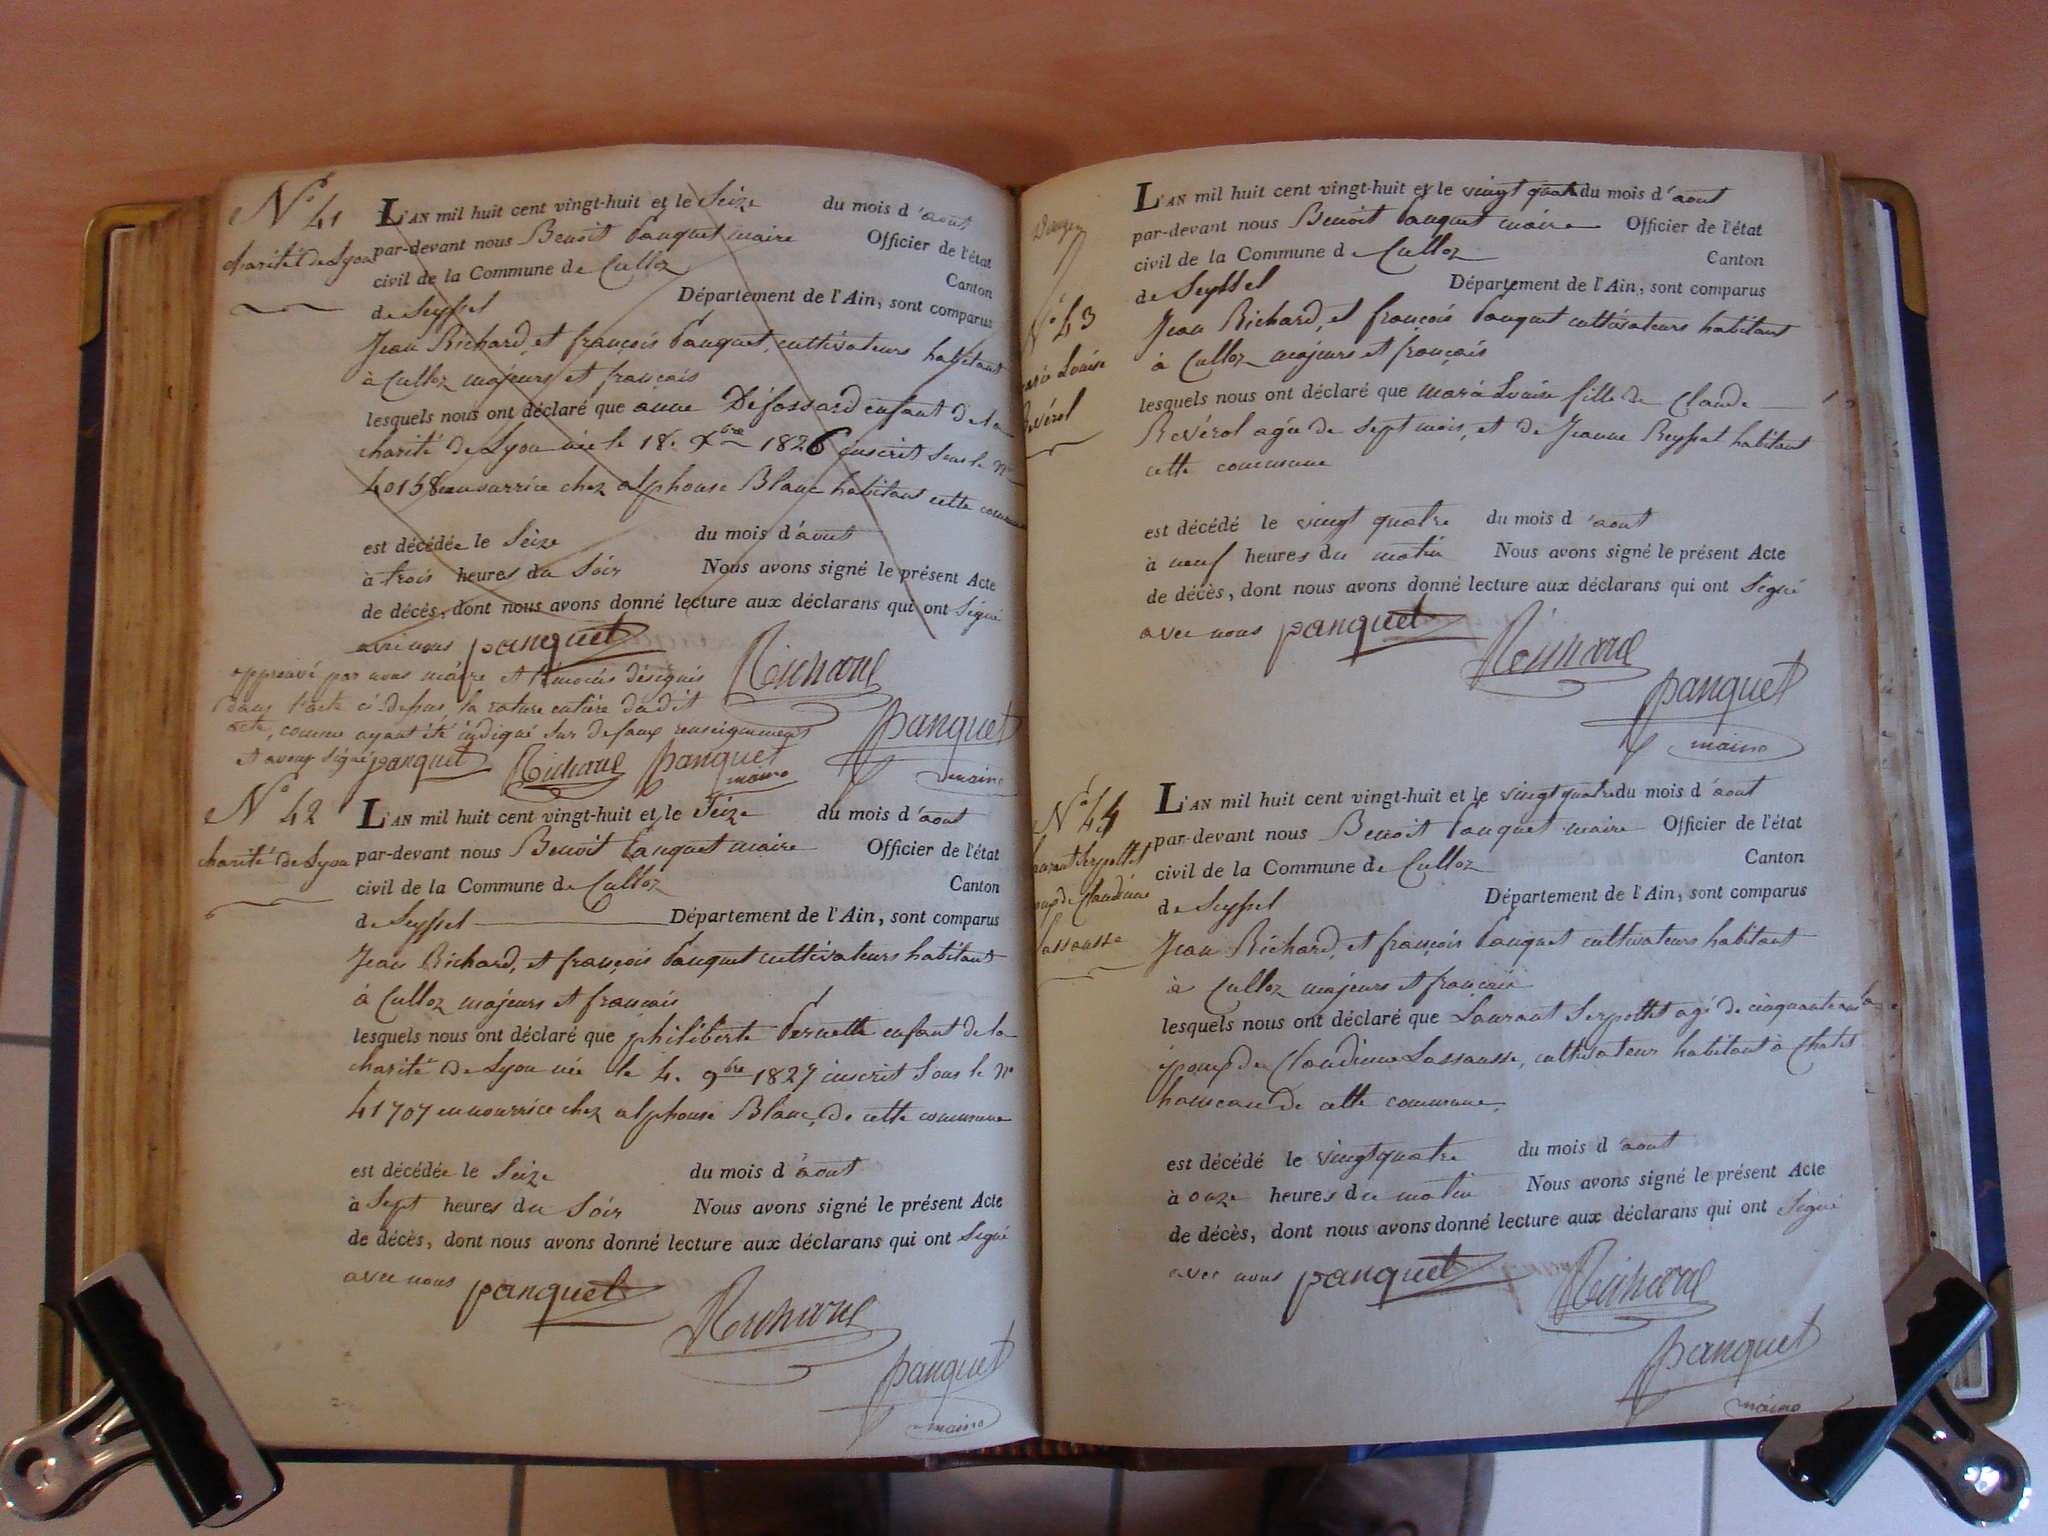 N° 41
charité de Lyon
L'AN mil huit cent vingt-huit et le Seize du mois d'aout
par-devant nous Benoit Panquet maire Officier de l'état
civil de la Commune de Culloz Canton
de Seyssel Département de l'Ain, sont comparus
Jean Richard, et françois Panquet, cultivateurs habitant
à Culloz majeurs et français
lesquels nous ont déclaré que anne Défossard enfant de la
charité de Lyon née le 18. Xbre 1826 inscrit sous le N°
40158 en nourrice chez alphonse Blanc habitant cette commune
est décédée le Seize du mois d'aout
à trois heures du Soir Nous avons signé le présent Acte
de décès, dont nous avons donné lecture aux déclarans qui ont Signé
avec nous panquet
Richard
panquet
maire
approuvé par nous maire et témoins désignés
dans l'acte ci-dessus, la rature entière dudit
acte, comme ayant été indiqué sur de faux renseignements
et avons signé panquet Richard panquet
maire
N° 42
charité de Lyon
L'AN mil huit cent vingt-huit et le Seize du mois d'aout
par-devant nous Benoit Panquet maire Officier de l'état
civil de la Commune de Culloz Canton
de Seyssel Département de l'Ain, sont comparus
Jean Richard, et françois Panquet cultivateurs habitant
à Culloz majeurs et français
lesquels nous ont déclaré que philiberte Pernette enfant de la
charité de Lyon née le 4. 9bre 1827 inscrit Sous le N°
41707 en nourrice chez alphonse Blanc, de cette commune
est décédée le Seize du mois d'aout
à Sept heures du Soir Nous avons signé le présent Acte
de décès, dont nous avons donné lecture aux déclarans qui ont Signé
avec nous panquet
Richard
panquet
maire
N° 43
Louise
L'AN mil huit cent vingt-huit et le vingt quatre du mois d'aout
par-devant nous Benoit Panquet maire Officier de l'état
civil de la Commune de Culloz Canton
de Seyssel Département de l'Ain, sont comparus
Jean Richard, et françois Panquet cultivateurs habitant
à Culloz majeurs et français
lesquels nous ont déclaré que marie Louise fille de Claude
Revérol agée de sept mois, et de Jeanne Reyssel habitant
cette commune
est décédé le vingt quatre du mois d'aout
à neuf heures du matin Nous avons signé le présent Acte
de décès, dont nous avons donné lecture aux déclarans qui ont Signé
avec nous panquet
Richard
panquet
maire
N° 44
Serpollet
de Claudine
Lassausse
L'AN mil huit cent vingt-huit et le vingt quatre du mois d'aout
par-devant nous Benoit Panquet maire Officier de l'état
civil de la Commune de Culloz Canton
de Seyssel Département de l'Ain, sont comparus
Jean Richard, et françois Panquet cultivateurs habitant
à Culloz majeurs et français
lesquels nous ont déclaré que Laurant Serpollet agé de cinquante
époux de Claudine Lassausse, cultivateur habitant à
hameau de cette commune,
est décédé le vingt quatre du mois d'aout
à onze heures du matin Nous avons signé le présent Acte
de décès, dont nous avons donné lecture aux déclarans qui ont Signé
avec nous panquet
Richard
panquet
maire